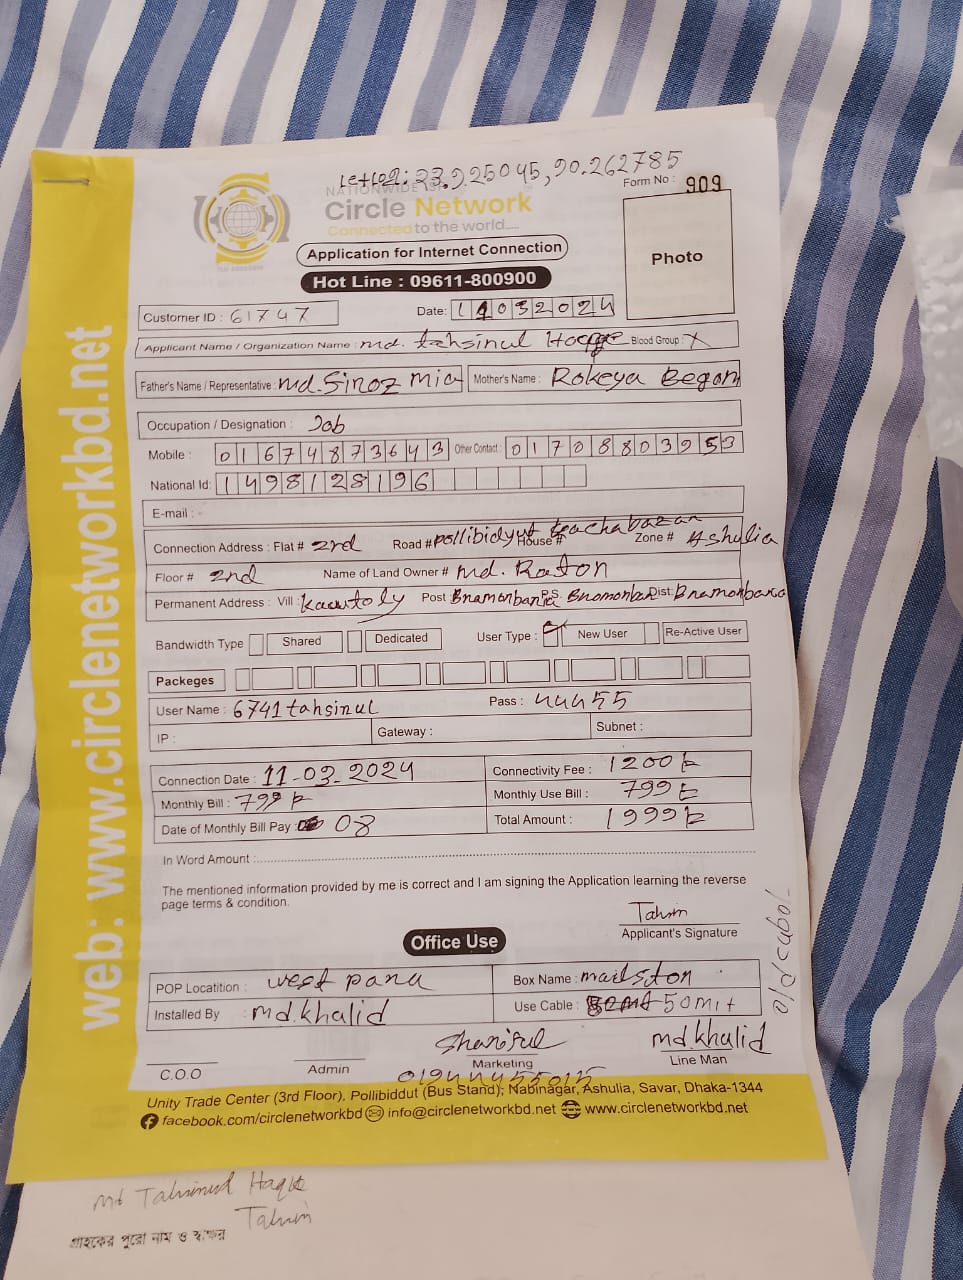 Let Log: 23.925045, 90.262785
NATIONWIDE ISP
Form No : 909
Circle Network
Connected to the world.....
Application for Internet Connection
Photo
Hot Line : 09611-800900
Customer ID : 61747
Date: 11032024
Applicant Name / Organization Name : md. tahsinul Hoqqe Blood Group : X
Father's Name / Representative : md. Siroz Mia Mother's Name : Rokeya Begom
Occupation / Designation : Job
Mobile : 01674873643 Other Contact : 01708803953
National Id: 1498128196
E-mail : -
Connection Address : Flat # 2nd Road # pollibidyut House # kachabazar Zone # Ashulia
Floor # 2nd Name of Land Owner # md. Raton
Permanent Address : Vill : Kautoly Post P.S. Dist:
Bandwidth Type Shared Dedicated User Type : New User Re-Active User
Packeges
User Name : 6741tahsinul Pass : 44455
IP : Gateway : Subnet :
Connection Date : 11-03-2024 Connectivity Fee : 1200 ৳
Monthly Bill : 799 ৳ Monthly Use Bill : 799 ৳
Date of Monthly Bill Pay : 08 Total Amount : 1999 ৳
In Word Amount :
The mentioned information provided by me is correct and I am signing the Application learning the reverse
page terms & condition.
Tahsin
Applicant's Signature
Office Use
old cabol
POP Locatition : west para Box Name : mailston
Installed By : md. khalid Use Cable : 50mit
Shariful md. khalid
C.O.O Admin Marketing Line Man
Unity Trade Center (3rd Floor), Pollibiddut (Bus Stand), Nabinagar, Ashulia, Savar, Dhaka-1344
facebook.com/circlenetworkbd info@circlenetworkbd.net www.circlenetworkbd.net
web: www.circlenetworkbd.net
Md Tahsinul Haque
Tahsin
গ্রাহকের পুরো নাম ও স্বাক্ষর